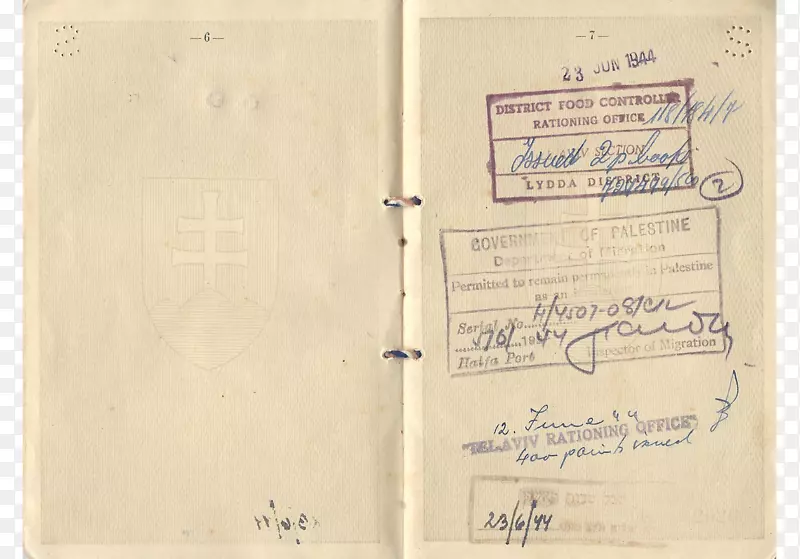 — 6 —
— 7 —
23 JUN 1944
DISTRICT FOOD CONTROLLER
RATIONING OFFICE
Issued 2 p. books
SECTION
LYDDA DISTRICT
2
GOVERNMENT OF PALESTINE
Department of Migration
Permitted to remain permanently in Palestine
as an
Serial No.
Haifa Port
Inspector of Migration
12. June 44
"TEL-AVIV RATIONING OFFICE"
400 points issued
23/6/44